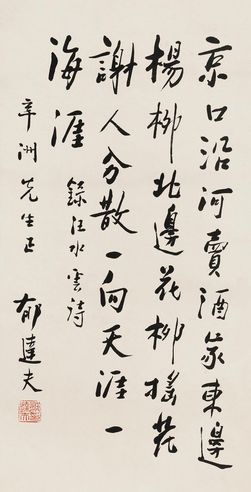 京口沿河賣酒家東邊
楊柳北邊花柳搖花
謝人分散一向天涯一
海涯
錄汪水雲詩
辛洲先生正
郁達夫